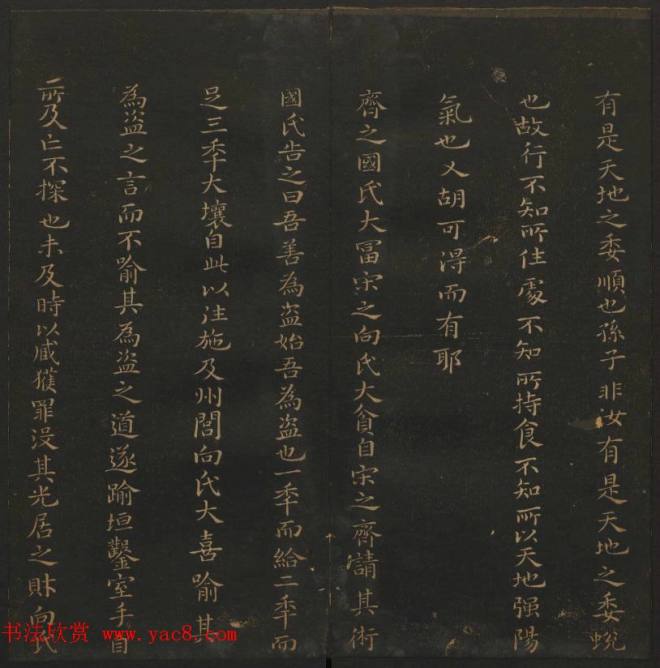 有是天地之委順也孫子非汝有是天地之委蛻
也故行不知所住處不知所持食不知所以天地强陽
氣也又胡可得而有耶
齊之國氏大冨宋之向氏大貧自宋之齊請其術
國氏告之曰吾善為盜始吾為盜也一季而給二季而
足三季大壤自此以往施及州閭向氏大喜喻其
為盜之言而不喻其為盜之道遂踰垣鑿室手目
所及亡不探也未及時以臧獲罪没其先居之財向氏
书法欣赏 www.yac8.com